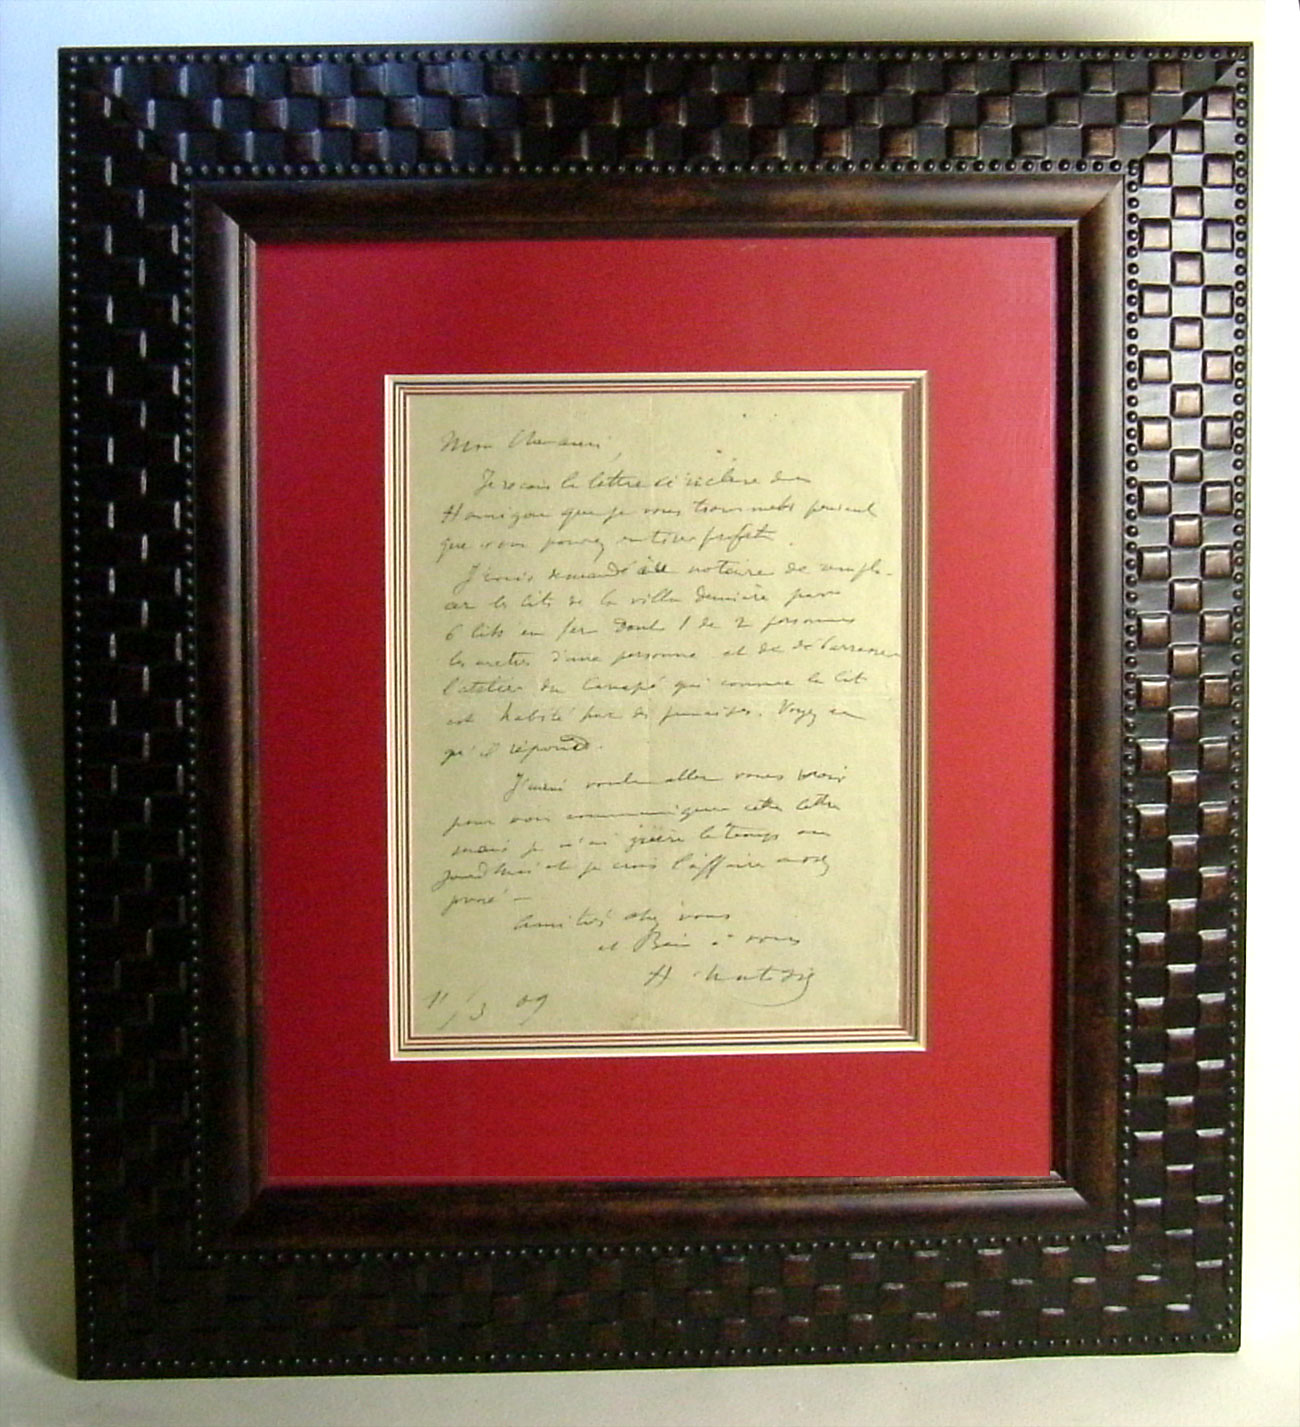 Mon cher ami,
Je reçois la lettre ci incluse de
que je vous transmets pensant
que vous pouvez en tirer profit.
J'avais demandé au notaire de rempla-
cer les lits de la villa dernière par
6 lits en fer dont 1 de 2 personnes
les autres d'une personne et de débarrasser
l'atelier du canapé qui comme le lit
est habité par des punaises. Voyez ce
qu'il répond.
J'aurai voulu aller vous voir
pour vous communiquer cette lettre
mais je n'ai guère le temps au
jourd'hui et je crois l'affaire assez
Amitiés chez vous
et Bien à vous
H. Matisse
11/3 09